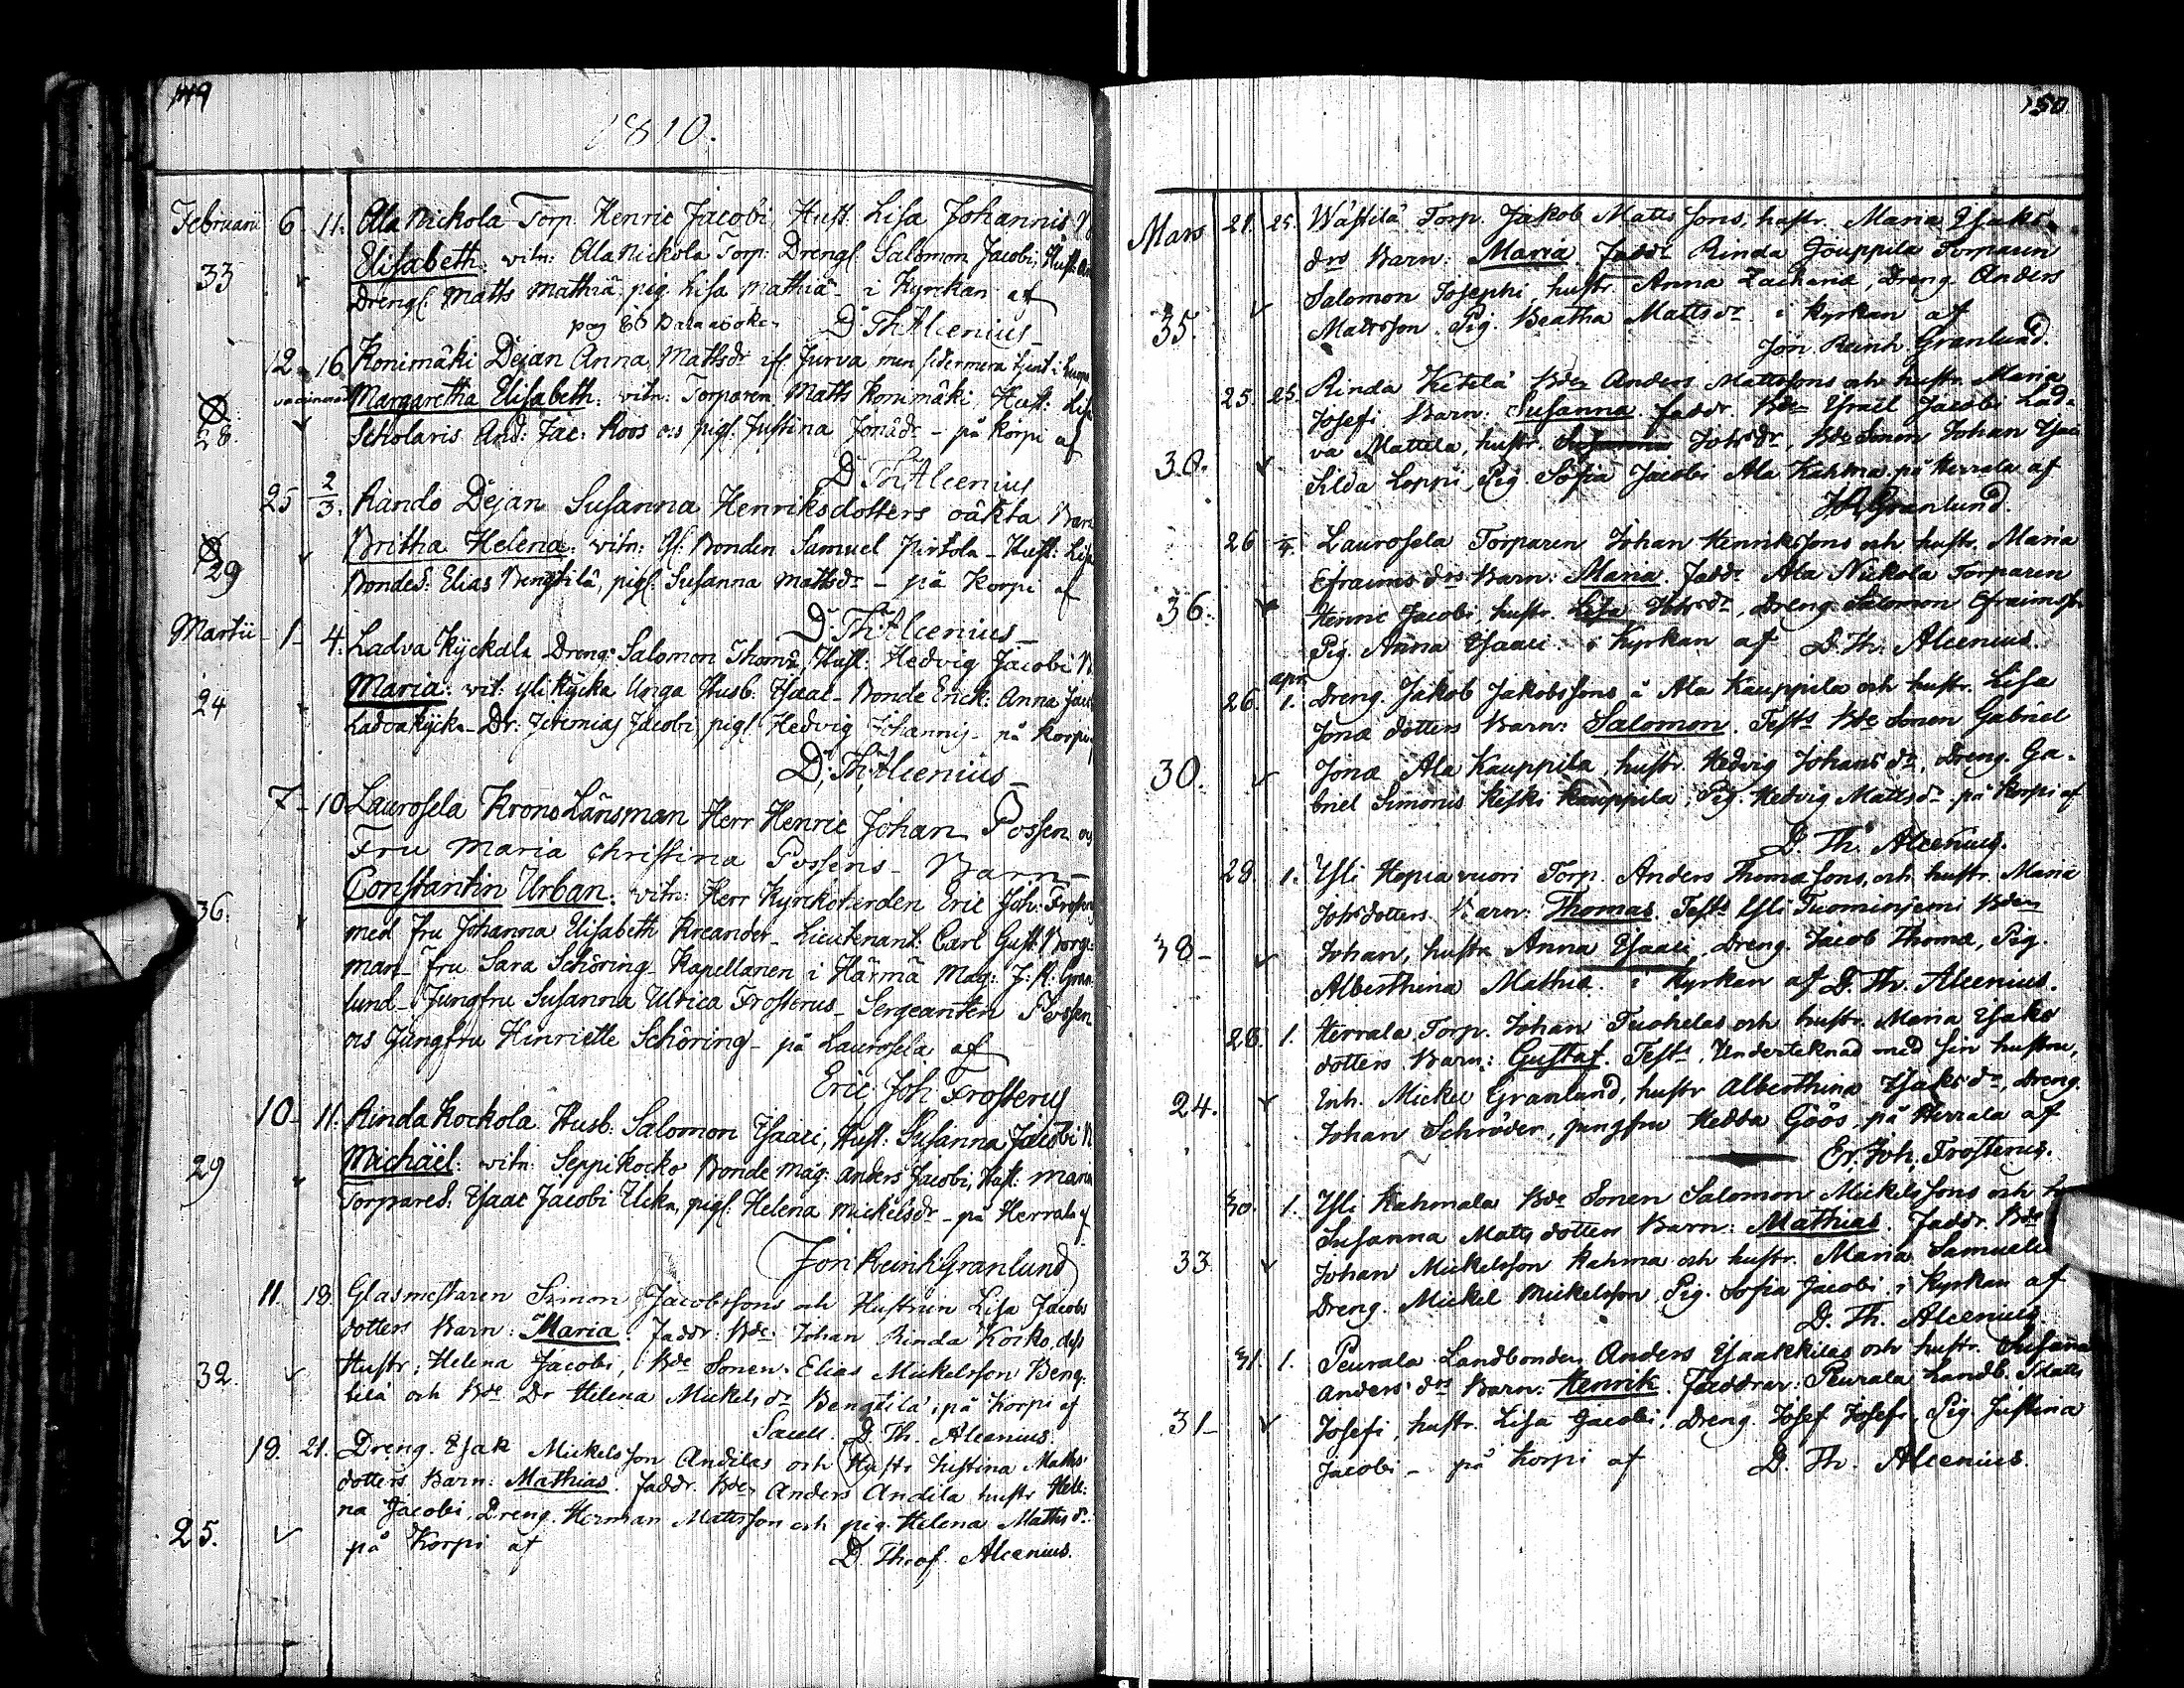 149
1810.
Februarii 6 11. Ala Nickola Torp. Henric Jacobi, Hust. Lisa Johannis
Elisabeth. witn: Ala Nickola Torp: Drengl Salomon Jacobi, Hust:
33 Drengl: Matts Mathiæ, pig. Lisa Mathiæ - i Kyrckan af
D: Th: Alcenius
12 16 Konimäki Dejan Anna Mattsdr Jurva men sedermera tjent i
Margaretha Elisabeth. witn: Torparen Matts Konimäki, Hust: Lisa
28 Scholaris And: Jac: Roos ocs pigl. Justina Jonædr - på Korpi af
D: Th: Alcenius
25 2/3. Rando Dejan Susanna Henriksdotters oäkta Barn
Britha Helena. witn: Bonden Samuel Pirtola - Hust: Lisa
29 Bondes: Elias Bengtilä, pigl: Susanna Mattsdr - på Korpi af
D: Th: Alcenius
Martii 1 4. Ladva Kyckälä Dreng: Salomon Thomæ, Hust: Hedvig Jacobi
Maria. wit: Yli Kycka Unga Husb. Ysaac - Bonde Erick: Anna
24 Ladvakycka - Dr: Jeremias Jacobi pigl Hedvig Johannis - på Korpi
D: Th: Alcenius
7 10 Laurosela Krono Länsman Herr Henric Johan Possen
Fru Maria Christina Possens - Barn -
Constantin Urban. witn: Herr Kyrckoherden Eric Joh: Froster
36. med Fru Johanna Elisabeth Kreander - Lieutenant Carl Gust: Borg:
man - Fru Sara Schöring - Kapellanen i Härmä Mag: J: R: Gran
lund - Jungfru Susanna Ulrica Frosterus - Sergeanten Possen
ocs Jungfru Hinriette Schöring - på Laurosela af
Eric Joh Frosterus
10 11. Rinda Kockola Husb: Salomon Ysaaci, Hust: Susanna Jacobi
Michaël. witn: Seppi Kocko Bonde Mag: Anders Jacobi, Hust: Maria
29 Torpares: Ysaac Jacobi Ucka, pigl. Helena Mickelsdr - på Herrala af
Jon Reinh Granlund
11. 18. Glasmestaren Simon Jacobssons och Hustrun Lisa Jacobs
dotters Barn: Maria. Faddr: Bde: Johan Rinda Kocko, dess
32. Hustr: Helena Jacobi, Bde Sonen: Elias Mickelsson Beng:
tilä och Bde Dr Helena Mickelsdr Bengtilä, på Korpi af
Sacell. D. Th. Alcenius
18. 21. Dreng. Ysak Mickelsson Andilas och Hustr Kistina Matts
dotters Barn: Mathias. Faddr. Bden Anders Andila hustr Hele:
25. na Jacobi, Dreng. Herman Mattsson och pig. Helena Mattsdr
på Korpi af D. Theof. Alcenius.
150
Mars 21. 25. Wästilä Torp. Jakob Matts sons, hustr. Maria Ysaks
drs Barn: Maria. Faddr Rinda Jouppila Torparen
35. Salomon Josephi, hustr. Anna Zachariæ, Dreng. Anders
Matsson. Pig. Beatha Mattsdr i Kyrkan af
Jon. Reinh. Granlund.
25. 25. Rinda Ketelä Bden Anders Mattssons och hustr. Maria
Josefi Barn: Susanna. faddr. Bde Ysraël Jacobi Lad-
30. va Mattela, hustr. Johsdr, Bde Sonen Johan
Silda Loppi, Pig. Sofia Jacobi Ala Kahma på Herrala af
J R Granlund.
26 Laurosela Torparen Johan Henrikssons och hustr. Maria
Efraims drs Barn: Maria. Faddr. Ala Nickola Torparen
36. Henric Jacobi, hustr. Lisa Johsdr, Dreng Salomon Efraimss
Pig. Anna Ysaaci. i Kyrkan af D: Th. Alcenius.
apr.
26. 1. Dreng. Jakob Jakobssons å Ala Kauppila och hustr. Lisa
Jonæ dotters Barn: Salomon. Tests Bde Sonen Gabriel
30. Jonæ Ala Kauppila, hustr. Hedvig Johansdr, Dreng. Ga-
briel Simonis Keski Kauppila, Pig. Hedvig Mattsdr på Korpi af
D. Th. Alcenius.
28. 1. Yli Hopiavuori Torp. Anders Thomæ sons, och hustr. Maria
Johsdotters Barn: Thomas. Tests Yli Tuominjemi Bden
38 Johan, hustr Anna Ysaaci, Dreng. Jacob Thomæ, Pig.
Alberthina Mathiæ. i Kyrkan af D. Th. Alcenius.
28. 1. Herrala Torp. Johan Tuohelas och hustr. Maria Ysaks
dotters Barn: Gustaf. Tests Undertecknad med sin hustru,
24. Inh. Mickel Granlund, hustr Alberthina Ysaksdr, Dreng.
Johan Schröder, jungfru Hedda Göös, på Herrala af
Er. Joh. Frosterus.
30. 1. Yli Kahmala Bde Sonen Salomon Mickelssons och
Susanna Matts dotters Barn: Mathias. Faddr. Bde
33 Johan Mickelsson Kahma och hustr. Maria Samuels
Dreng. Mickel Mickelsson Pig. Sofia Jacobi. i Kyrkan af
D. Th. Alcenius
31. 1. Peurala Landbonden Anders Ysaakkilas och hustr. Susanna
Anders drs Barn: Henrik. Faddrar: Peurala Landb. Matts
31 Josefi, hustr. Lisa Jacobi, Dreng. Josef Josefi, Pig. Justina
Jacobi - på Korpi af D. Th. Alcenius.